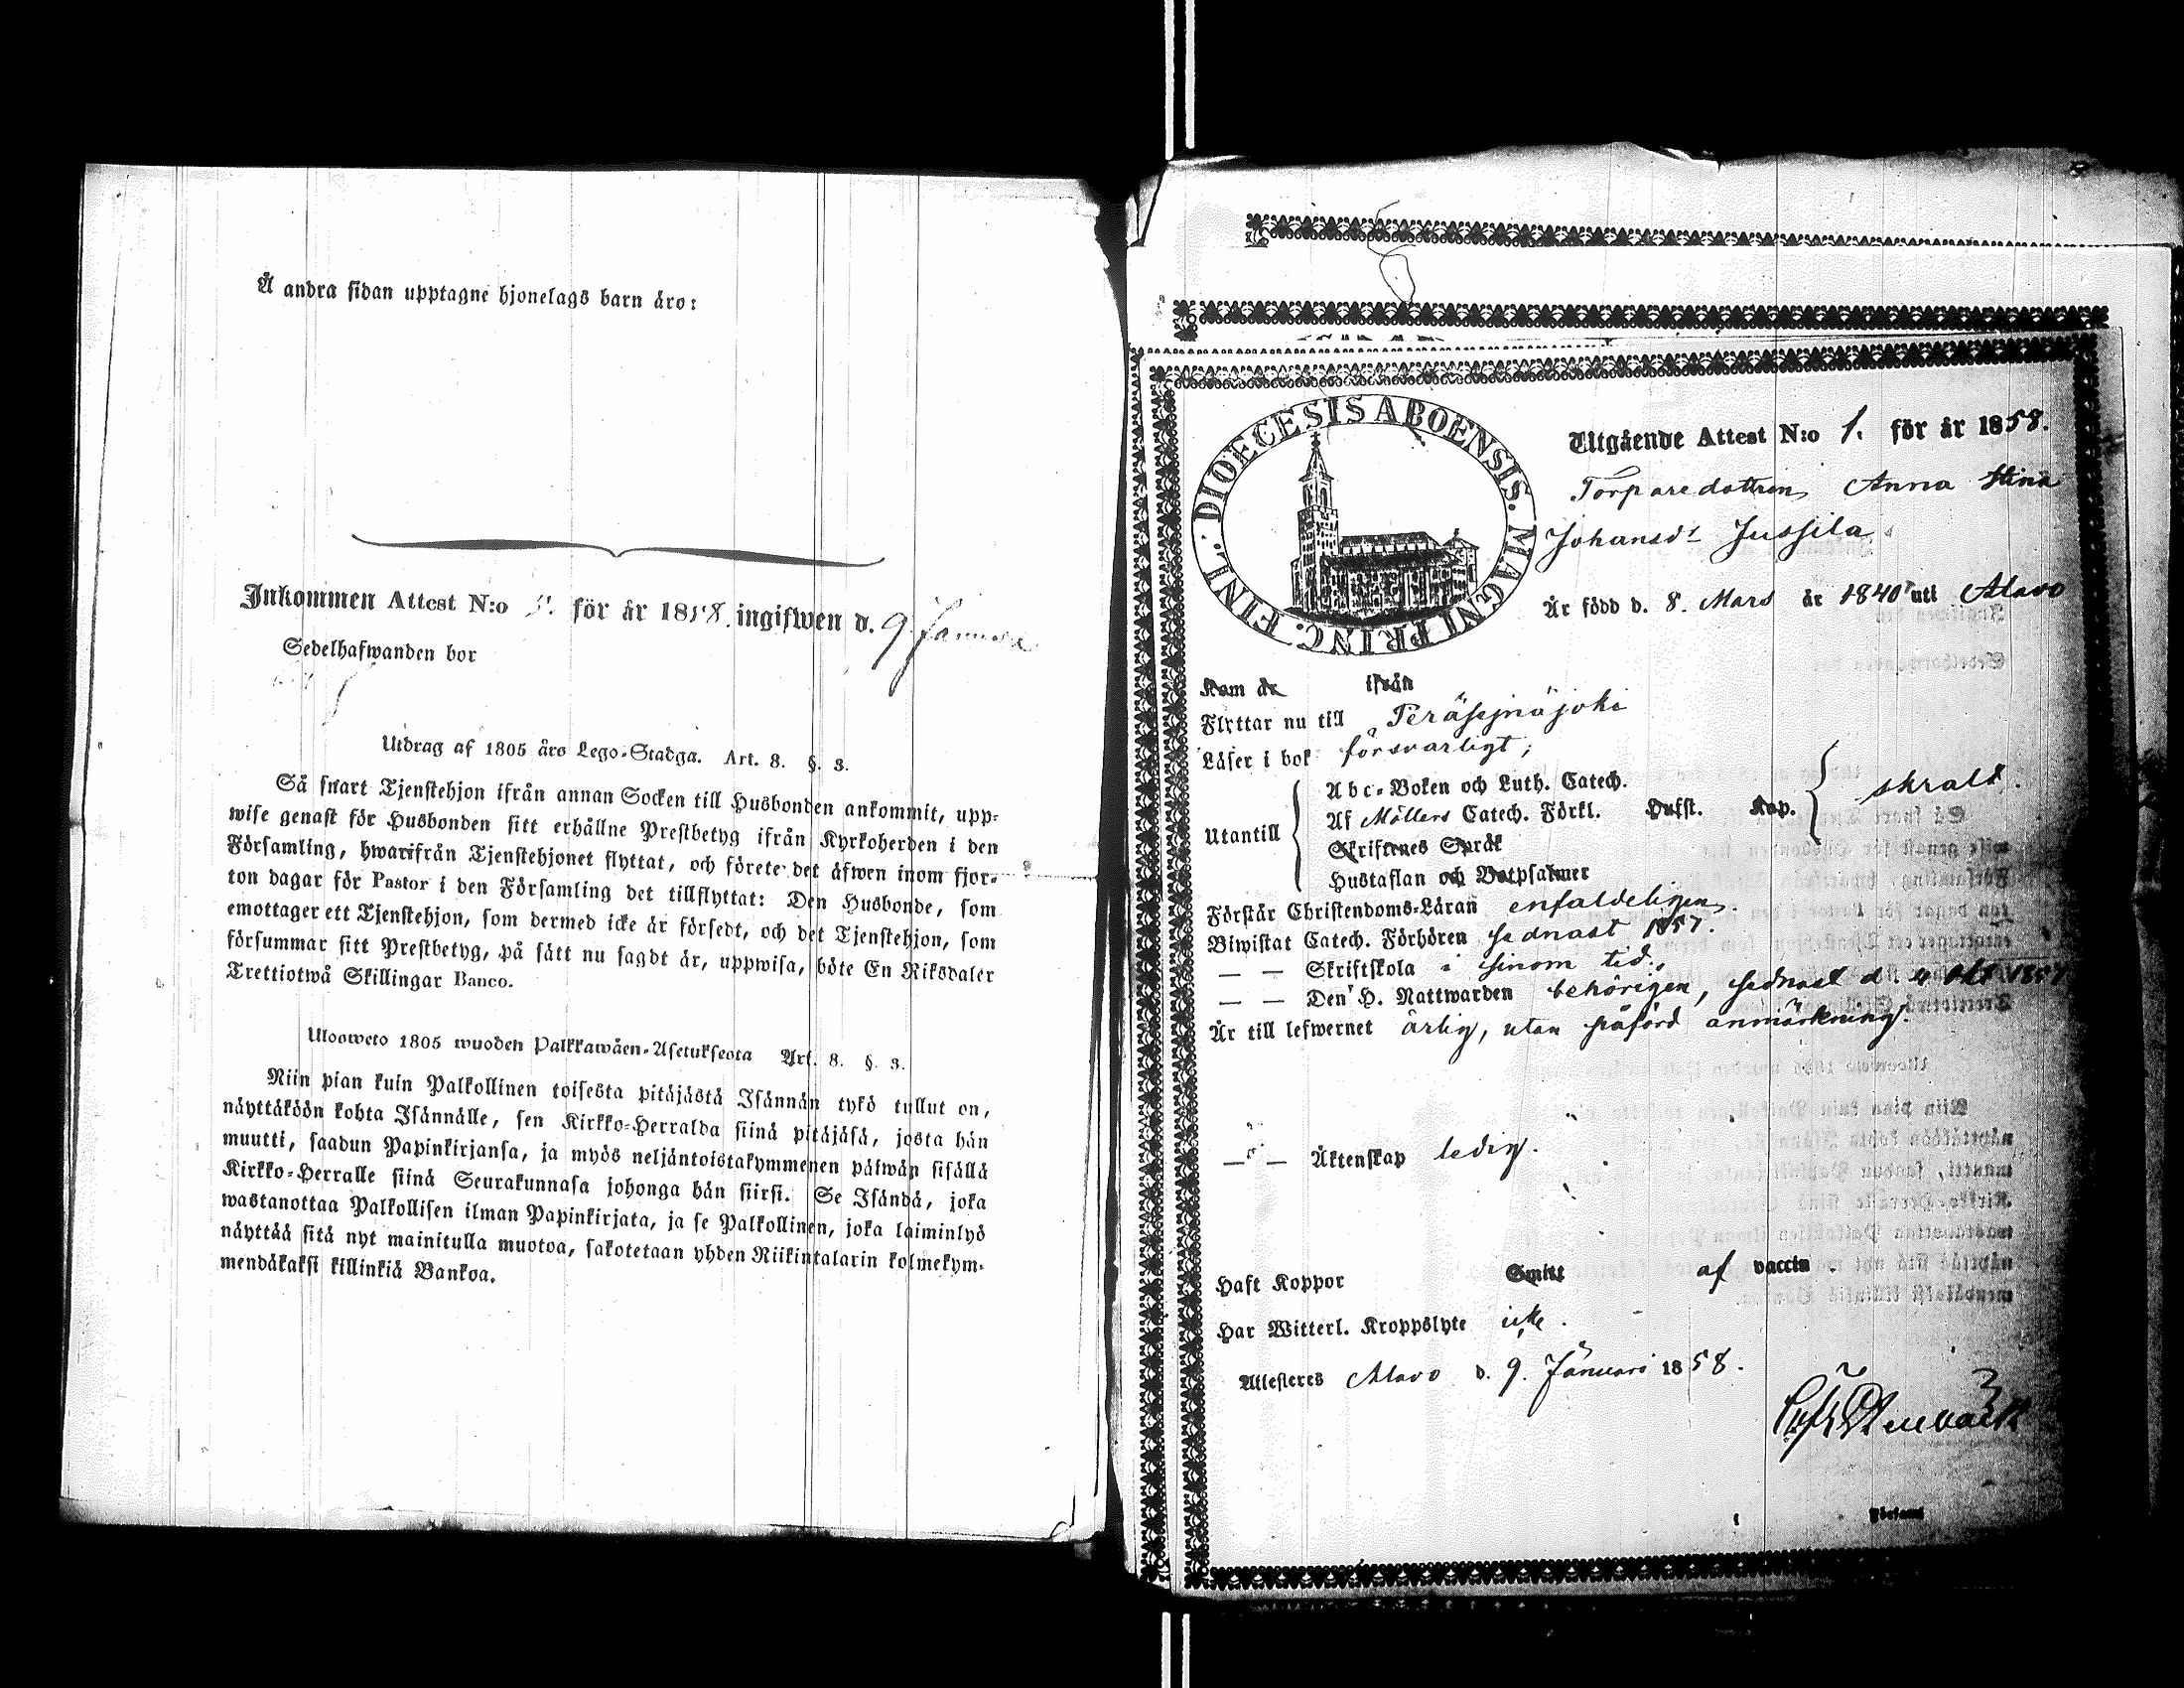 Å andra sidan upptagne hjonelags barn äro:
Inkommen Attest N:o för år 1858. ingifwen d. 9 Januari
Sedelhafwanden bor
Utdrag af 1805 års Lego-Stadga. Art. 8. §. 3.
Så snart Tjenstehjon ifrån annan Socken till Husbonden ankommit, upp-
wise genast för Husbonden sitt erhållne Prestbetyg ifrån Kyrkoherden i den
Församling, hwarifrån Tjenstehjonet flyttat, och förete det äfwen inom fjor-
ton dagar för Pastor i den Församling det tillflyttat: Den Husbonde, som
emottager ett Tjenstehjon, som dermed icke är försedt, och det Tjenstehjon, som
försummar sitt Prestbetyg, på sätt nu sagdt är, uppwisa, böte En Riksdaler
Trettiotwå Skillingar Banco.
Ulosweto 1805 wuoden Palkkawäen-Asetuksesta Art. 8. §. 3.
Niin pian kuin Palkollinen toisesta pitäjästä Isännän tykö tullut on,
näyttäköön kohta Isännälle, sen Kirkko-Herralda siinä pitäjäsä, josta hän
muutti, saadun Papinkirjansa, ja myös neljäntoistakymmenen päiwän sisällä
Kirkko-Herralle siinä Seurakunnasa johonga hän siirsi. Se Isändä, joka
wastanottaa Palkollisen ilman Papinkirjata, ja se Palkollinen, joka laiminlyö
näyttää sitä nyt mainitulla muotoa, sakotetaan yhden Riikintalarin kolmekym-
mendäkaksi killinkiä Bankoa.
DIOECESIS ABOENSIS. MAGNI PRINC. FINL.
Utgående Attest N:o 1. för år 1858.
Torparedottren Anna Stina
Johansdr Jussila
Är född d. 8. Mars år 1840 uti Alavo
Kom år ifrån
Flyttar nu till Peräsejnäjoki
Läser i bok försvarligt;
Utantill
Abc-Boken och Luth. Catech.
Af Möllers Catech. Förkl. Hufst. Kap. skralt.
Skriftenes Språk
Hustaflan och Botpsalmer
Förstår Christendoms-Läran enfaldeligen.
Biwistat Catech. Förhören sednast 1857.
— — Skriftskola i sinom tid.
— — Den H. Nattwarden behörigen, sednast d. 4 Okt 1857
Är till lefwernet ärlig, utan påförd anmärkning.
— — Äktenskap ledig.
Haft Koppor Smitt af vaccin.
Har Witterl. Kroppslyte icke.
Attesteres Alavo d. 9. Januari 1858.